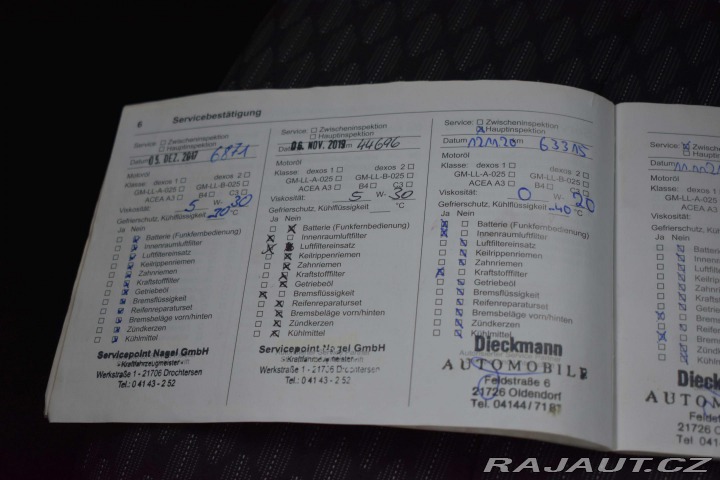 6 Servicebestätigung
Service: Zwischeninspektion
Hauptinspektion
Datum 05. DEZ. 2017 6371
Motoröl
Klasse: dexos 1 dexos 2
GM-LL-A-025 GM-LL-B-025
ACEA A3 B4 C3
Viskosität: 5 W- 30
Gefrierschutz, Kühlflüssigkeit °C
Ja Nein
Batterie (Funkfernbedienung)
Innenraumluftfilter
Luftfiltereinsatz
Keilrippenriemen
Zahnriemen
Kraftstofffilter
Getriebeöl
Bremsflüssigkeit
Reifenreparaturset
Bremsbeläge vorn/hinten
Zündkerzen
Kühlmittel
Servicepoint Nagel GmbH
Werkstraße 1 - 21706 Drochtersen
Tel.: 0 41 43 - 2 52
Service: Zwischeninspektion
Hauptinspektion
06. NOV. 2019 44696
Motoröl
Klasse: dexos 1 dexos 2
GM-LL-A-025 GM-LL-B-025
ACEA A3 B4 C3
Viskosität: 5 W- 30
Gefrierschutz, Kühlflüssigkeit °C
Ja Nein
Batterie (Funkfernbedienung)
Innenraumluftfilter
Luftfiltereinsatz
Keilrippenriemen
Zahnriemen
Kraftstofffilter
Getriebeöl
Bremsflüssigkeit
Reifenreparaturset
Bremsbeläge vorn/hinten
Zündkerzen
Kühlmittel
Servicepoint Nagel GmbH
Werkstraße 1 - 21706 Drochtersen
Tel.: 0 41 43 - 2 52
Service: Zwischeninspektion
Hauptinspektion
Datum km 63315
Motoröl
Klasse: dexos 1 dexos 2
GM-LL-A-025 GM-LL-B-025
ACEA A3 B4
Viskosität: 0 W- 20
Gefrierschutz, Kühlflüssigkeit -40 °C
Ja Nein
Batterie (Funkfernbedienung)
Innenraumluftfilter
Luftfiltereinsatz
Keilrippenriemen
Zahnriemen
Kraftstofffilter
Getriebeöl
Bremsflüssigkeit
Reifenreparaturset
Bremsbeläge vorn/hinten
Zündkerzen
Kühlmittel
Dieckmann
AUTOMOBILE
Feldstraße 6
21726 Oldendorf
Tel. 04144/71
Service: Zwischeninspektion
Hauptinspektion
Datum
Motoröl
Klasse: dexos 1
GM-LL-A-025
ACEA A3
Viskosität:
Gefrierschutz, Kühlflüssig
Ja Nein
Batterie (Funk
Innenraumluft
Luftfiltereinsa
Keilrippenrie
Zahnriemen
Kraftstofffilte
Getriebeöl
Bremsflüss
Reifenrepa
Bremsbelä
Zündkerze
Kühlmittel
Dieck
AUTOM
Felds
21726
Tel. 0414
RAJAUT.CZ